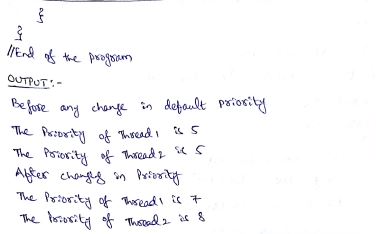 }
}
//End of the program
OUTPUT:-
Before any change in default priority
The Priority of Thread1 is 5
The Priority of Thread2 is 5
After changing in Priority
The Priority of Thread1 is 7
The Priority of Thread2 is 8